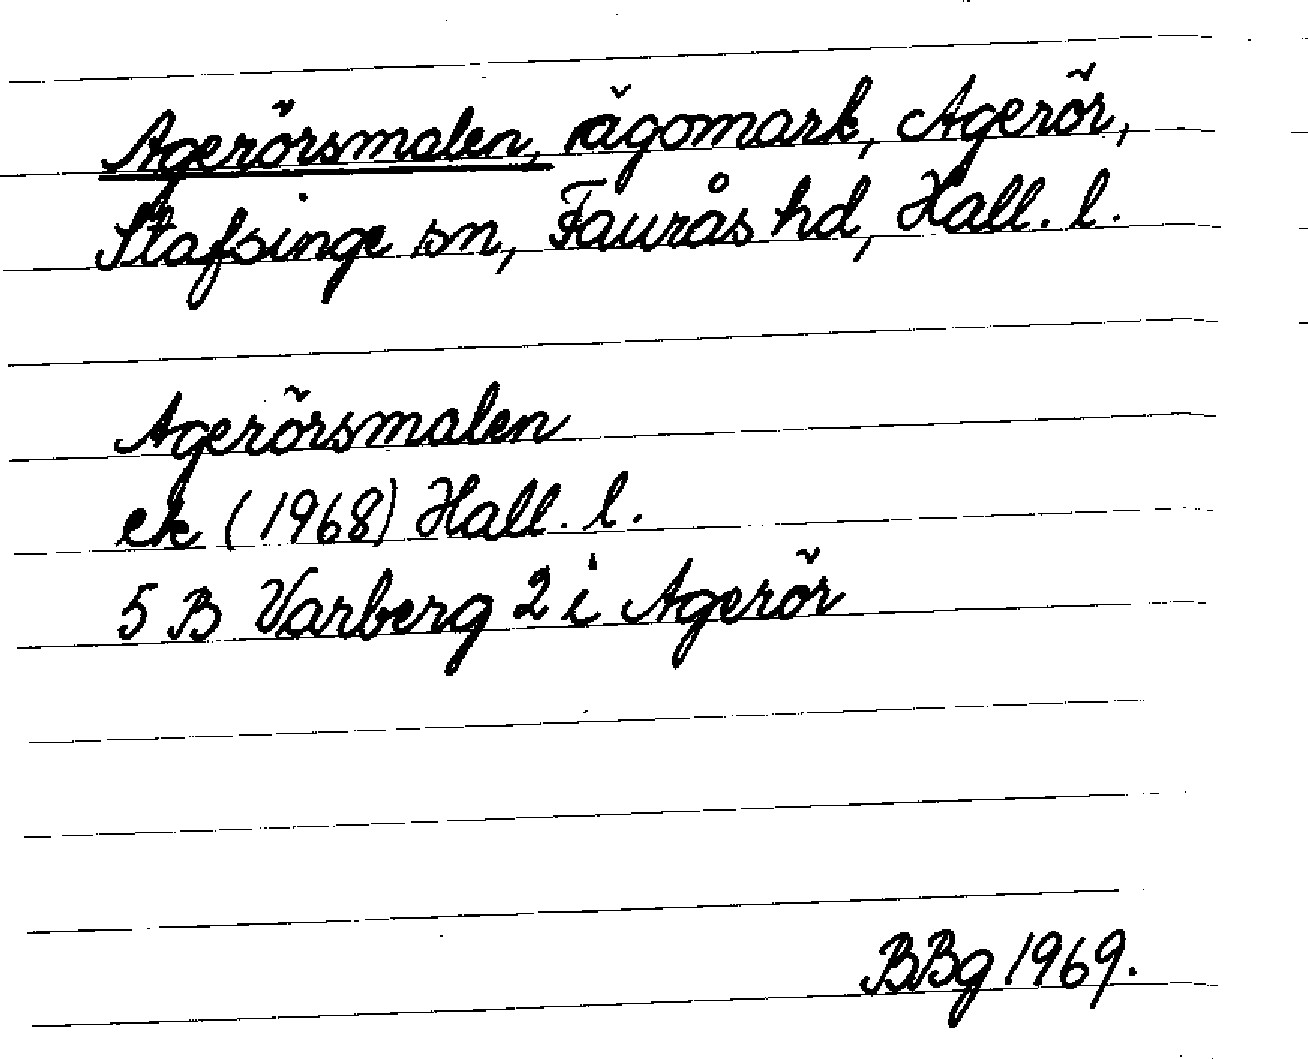 Agerörsmalen, ägomark, Agerör,
Stafsinge sn, Faurås hd, Hall. l.
Agerörsmalen
ek (1968) Hall. l.
5 B Varberg 2 i Agerör
BBg 1969.